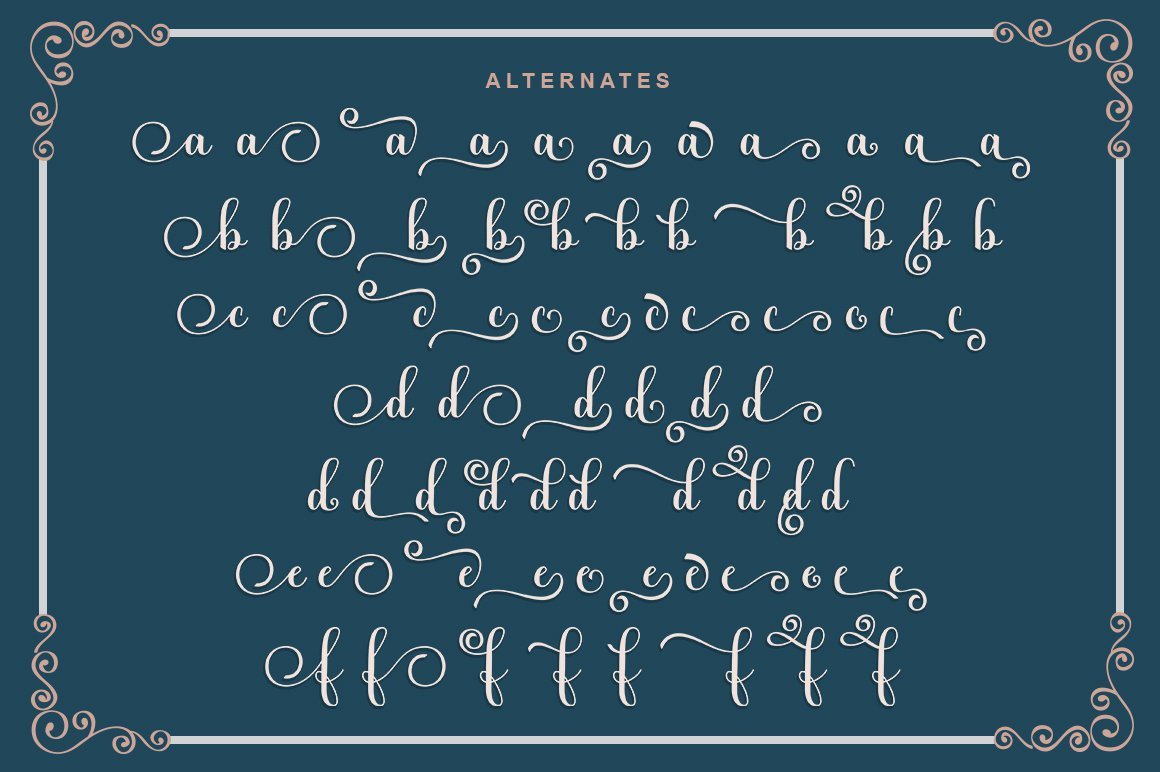 ALTERNATES
a a a a a a a a a a a
b b b b b b b b b b b
c c c c c c c c c c c c
d d d d d d
d d d d d d d d d d
e e e e e e e e e e e
f f f f f f f f